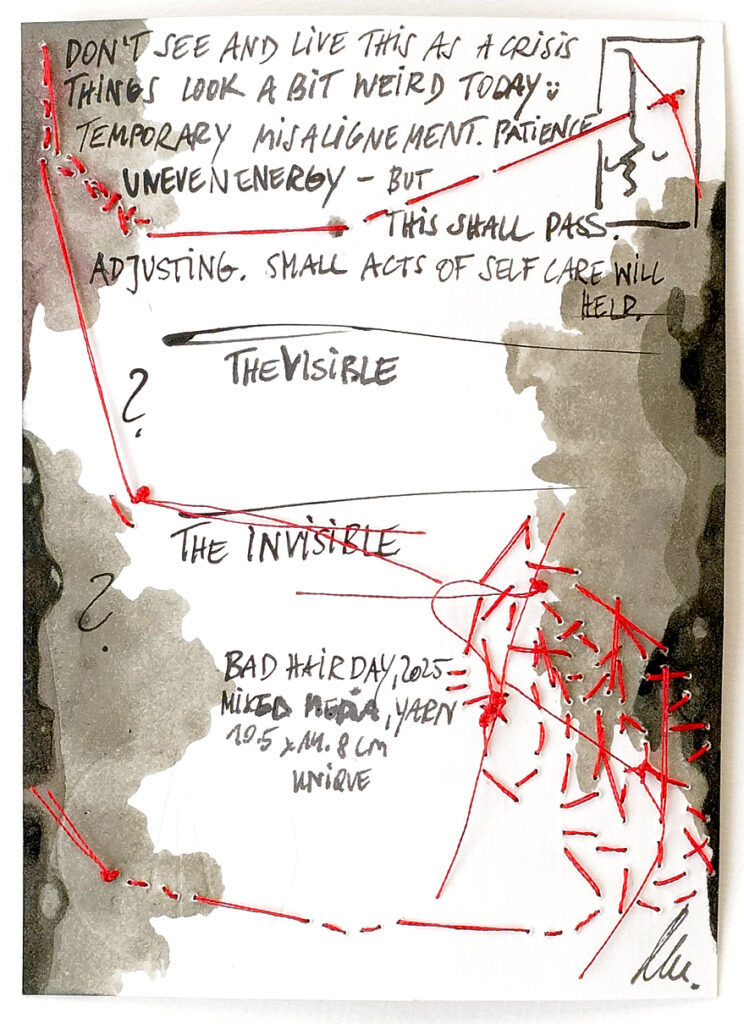 DON'T SEE AND LIVE THIS AS A CRISIS
THINGS LOOK A BIT WEIRD TODAY
TEMPORARY MISALIGNEMENT. PATIENCE
UNEVEN ENERGY - BUT
THIS SHALL PASS.
ADJUSTING. SMALL ACTS OF SELF CARE WILL
HELP.
THE VISIBLE
?
THE INVISIBLE
?
BAD HAIR DAY, 2025
MIXED MEDIA, YARN
10.5 x 14.8 CM
UNIQUE